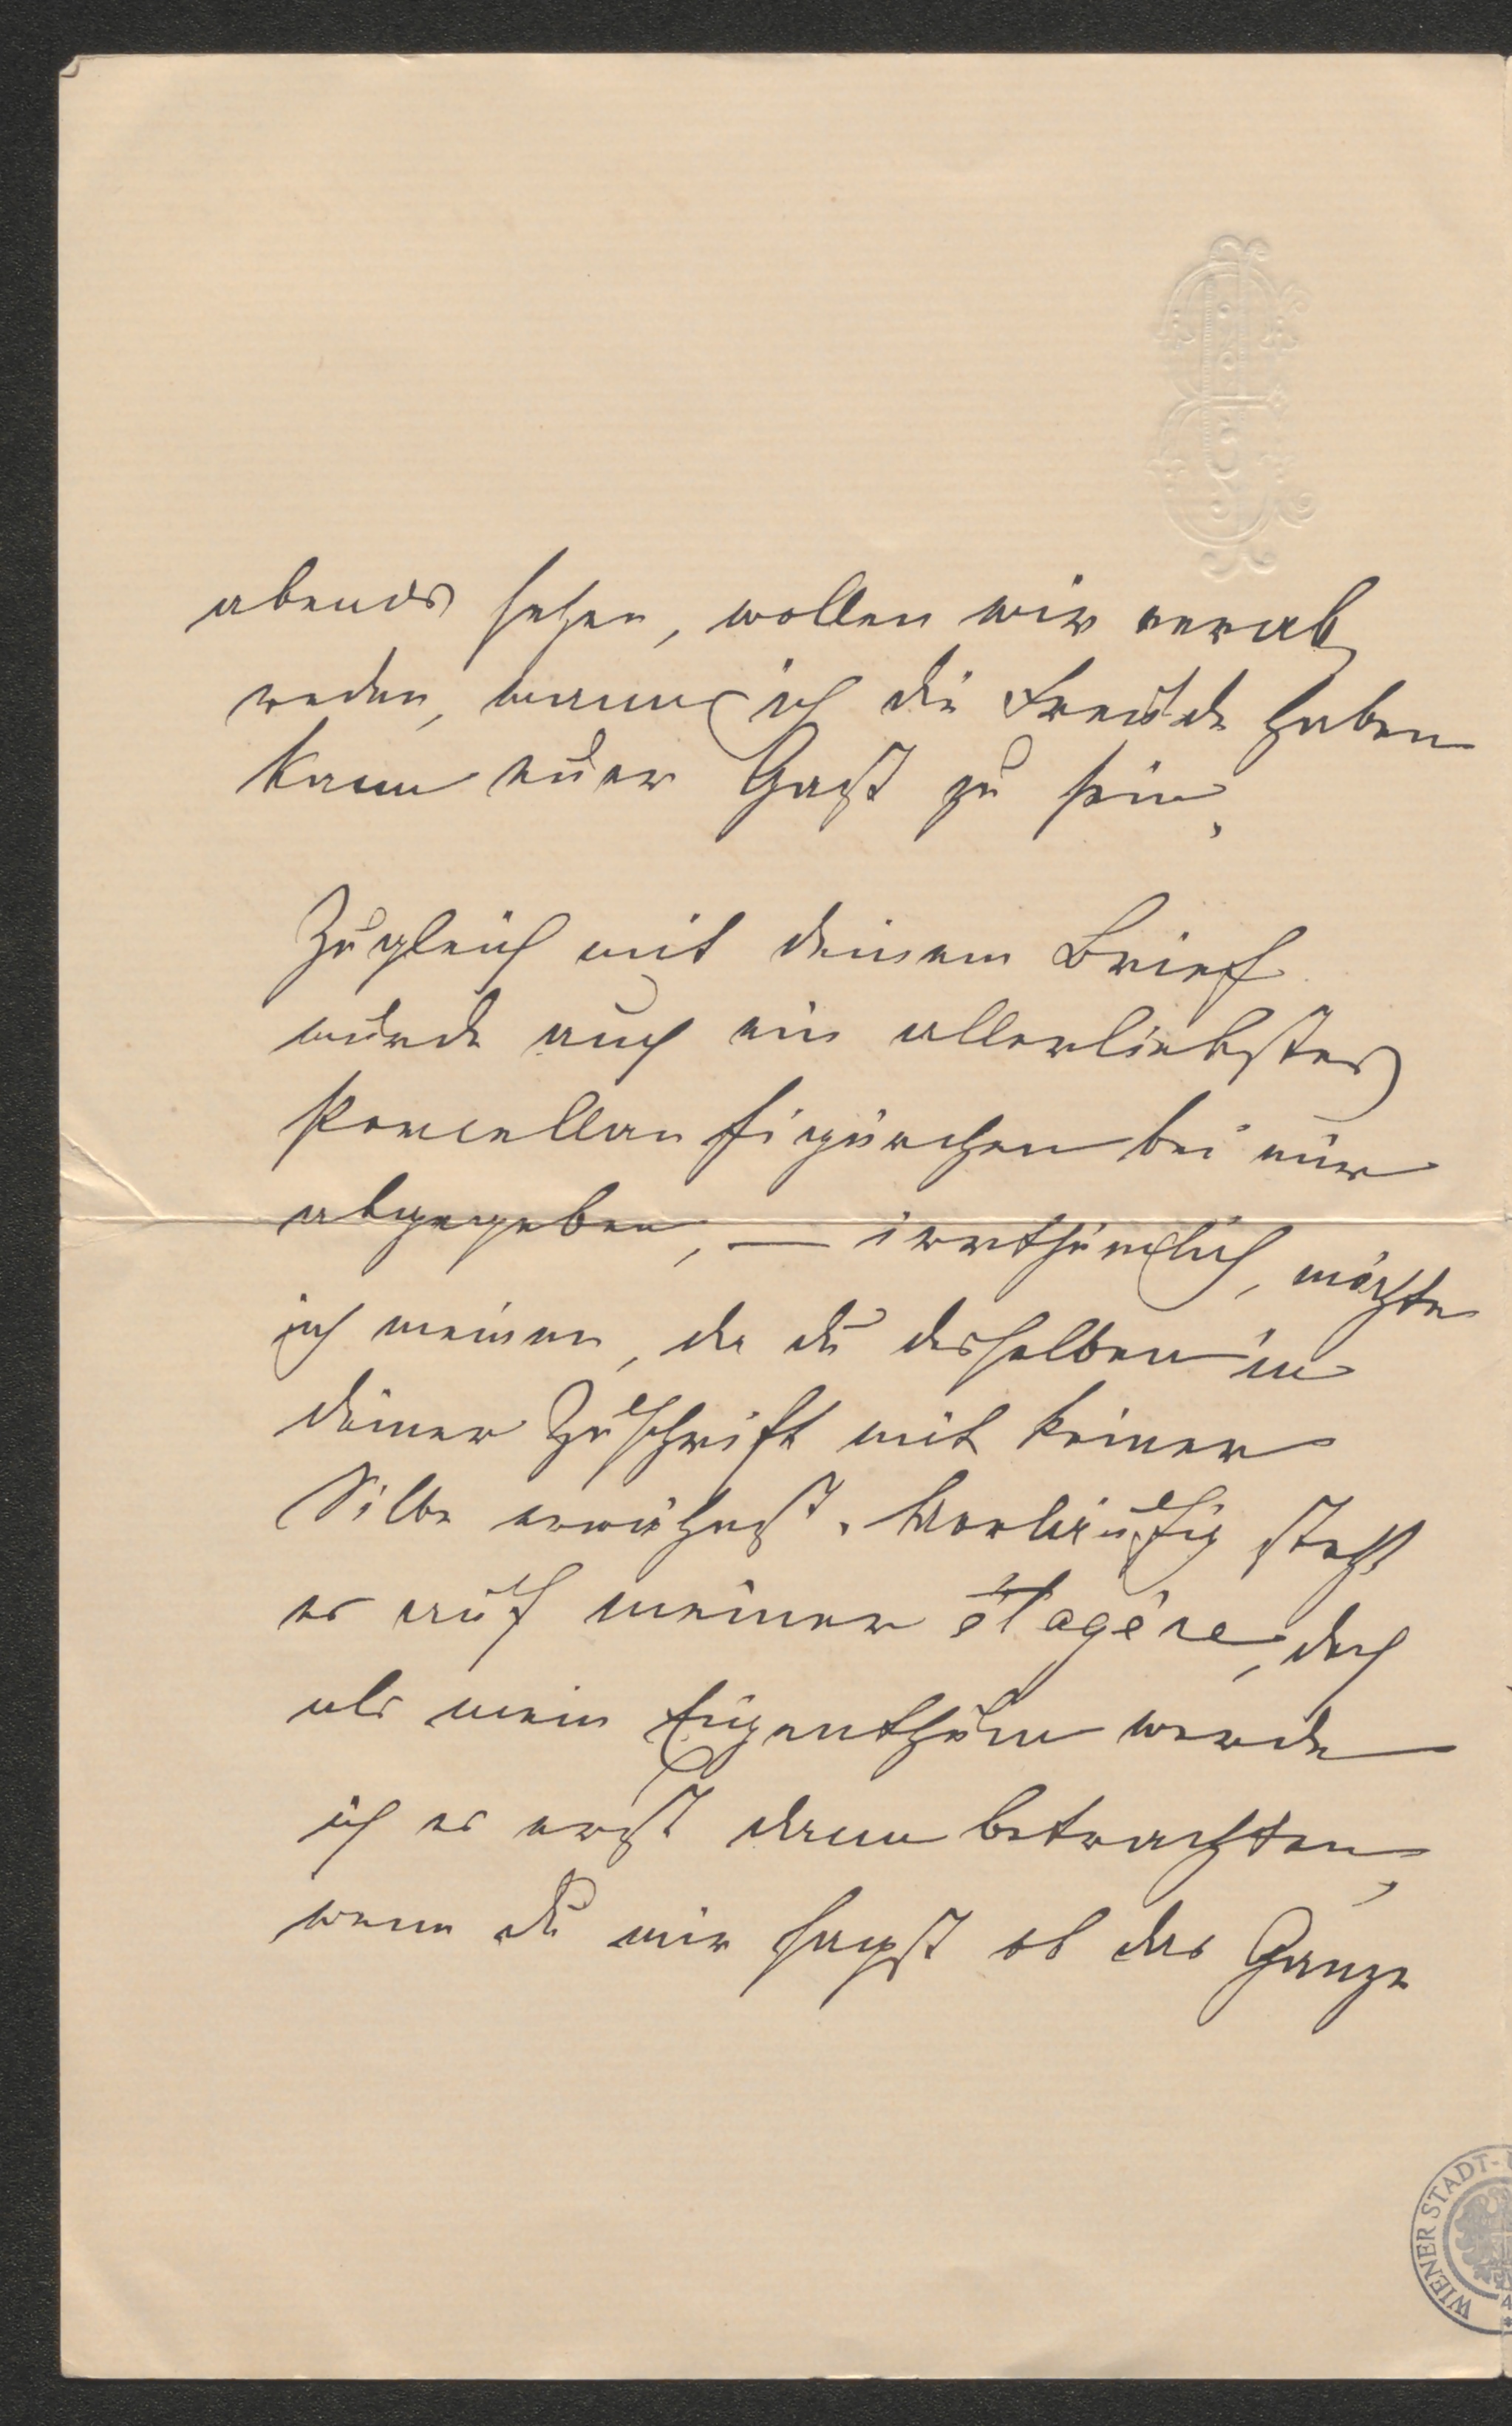 abends sehen, wollen wir verab
reden, wann ich die Freude haben
kann euer Gast zu sein.
Zugleich mit deinem Brief
wurde auch ein allerliebstes
Porcellanfigürchen bei mir
abgegeben, — irrthümlich, möchte
ich meinen, da du desselben in
deiner Zuschrift mit keiner
Silbe erwähnst. Vorläufig steht
es auf meiner étagère, doch
als mein Eigenthum werde
ich es erst dann betrachten,
wenn du mir sagst ob das Ganze
WIENER STADT-